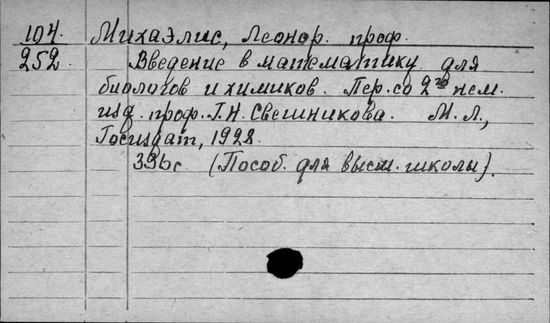 104. Михаэлис, Леонор. проф.
252. Введение в математику для
биологов и химиков. Пер. со 2го нем.
изд. проф. Г.Н. Свешникова. М. Л.,
Госиздат, 1928.
336с. (Пособ. для высш. школы).